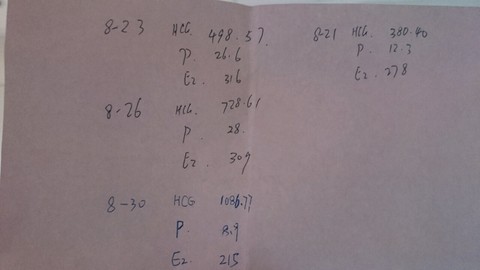 8-23 HCG 498.57
P. 26.6
E2 316
8-21 HCG. 380.40
P. 12.3
E2 278
8-26 HCG. 728.61
P. 28.
E2. 309
8-30 HCG 1086.77
P.
E2 215